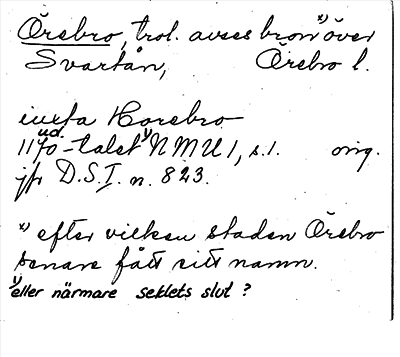 Örebro, trol. avses bron *) över
Svartån, Örebro l.
iuxta Horebro
ud.
1170-talet √ NMU 1, s. 1. orig.
jfr D.S.I. n. 823.
*) efter vilken staden Örebro
senare fått sitt namn.
√ eller närmare seklets slut ?